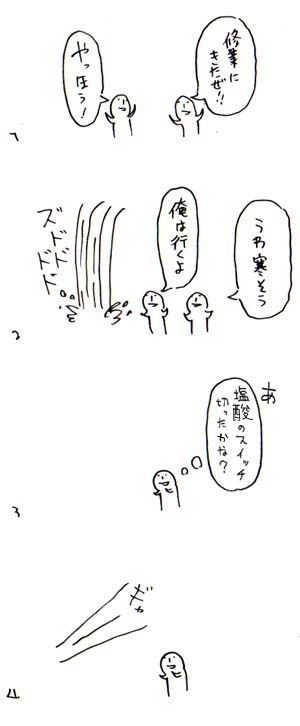 修業に
きたぜ!!
やっほう!
1
うわ寒そう
俺は行くよ
ズドドドド
2
あ
塩酸のスイッチ
切ったかな?
3
ギャ
4